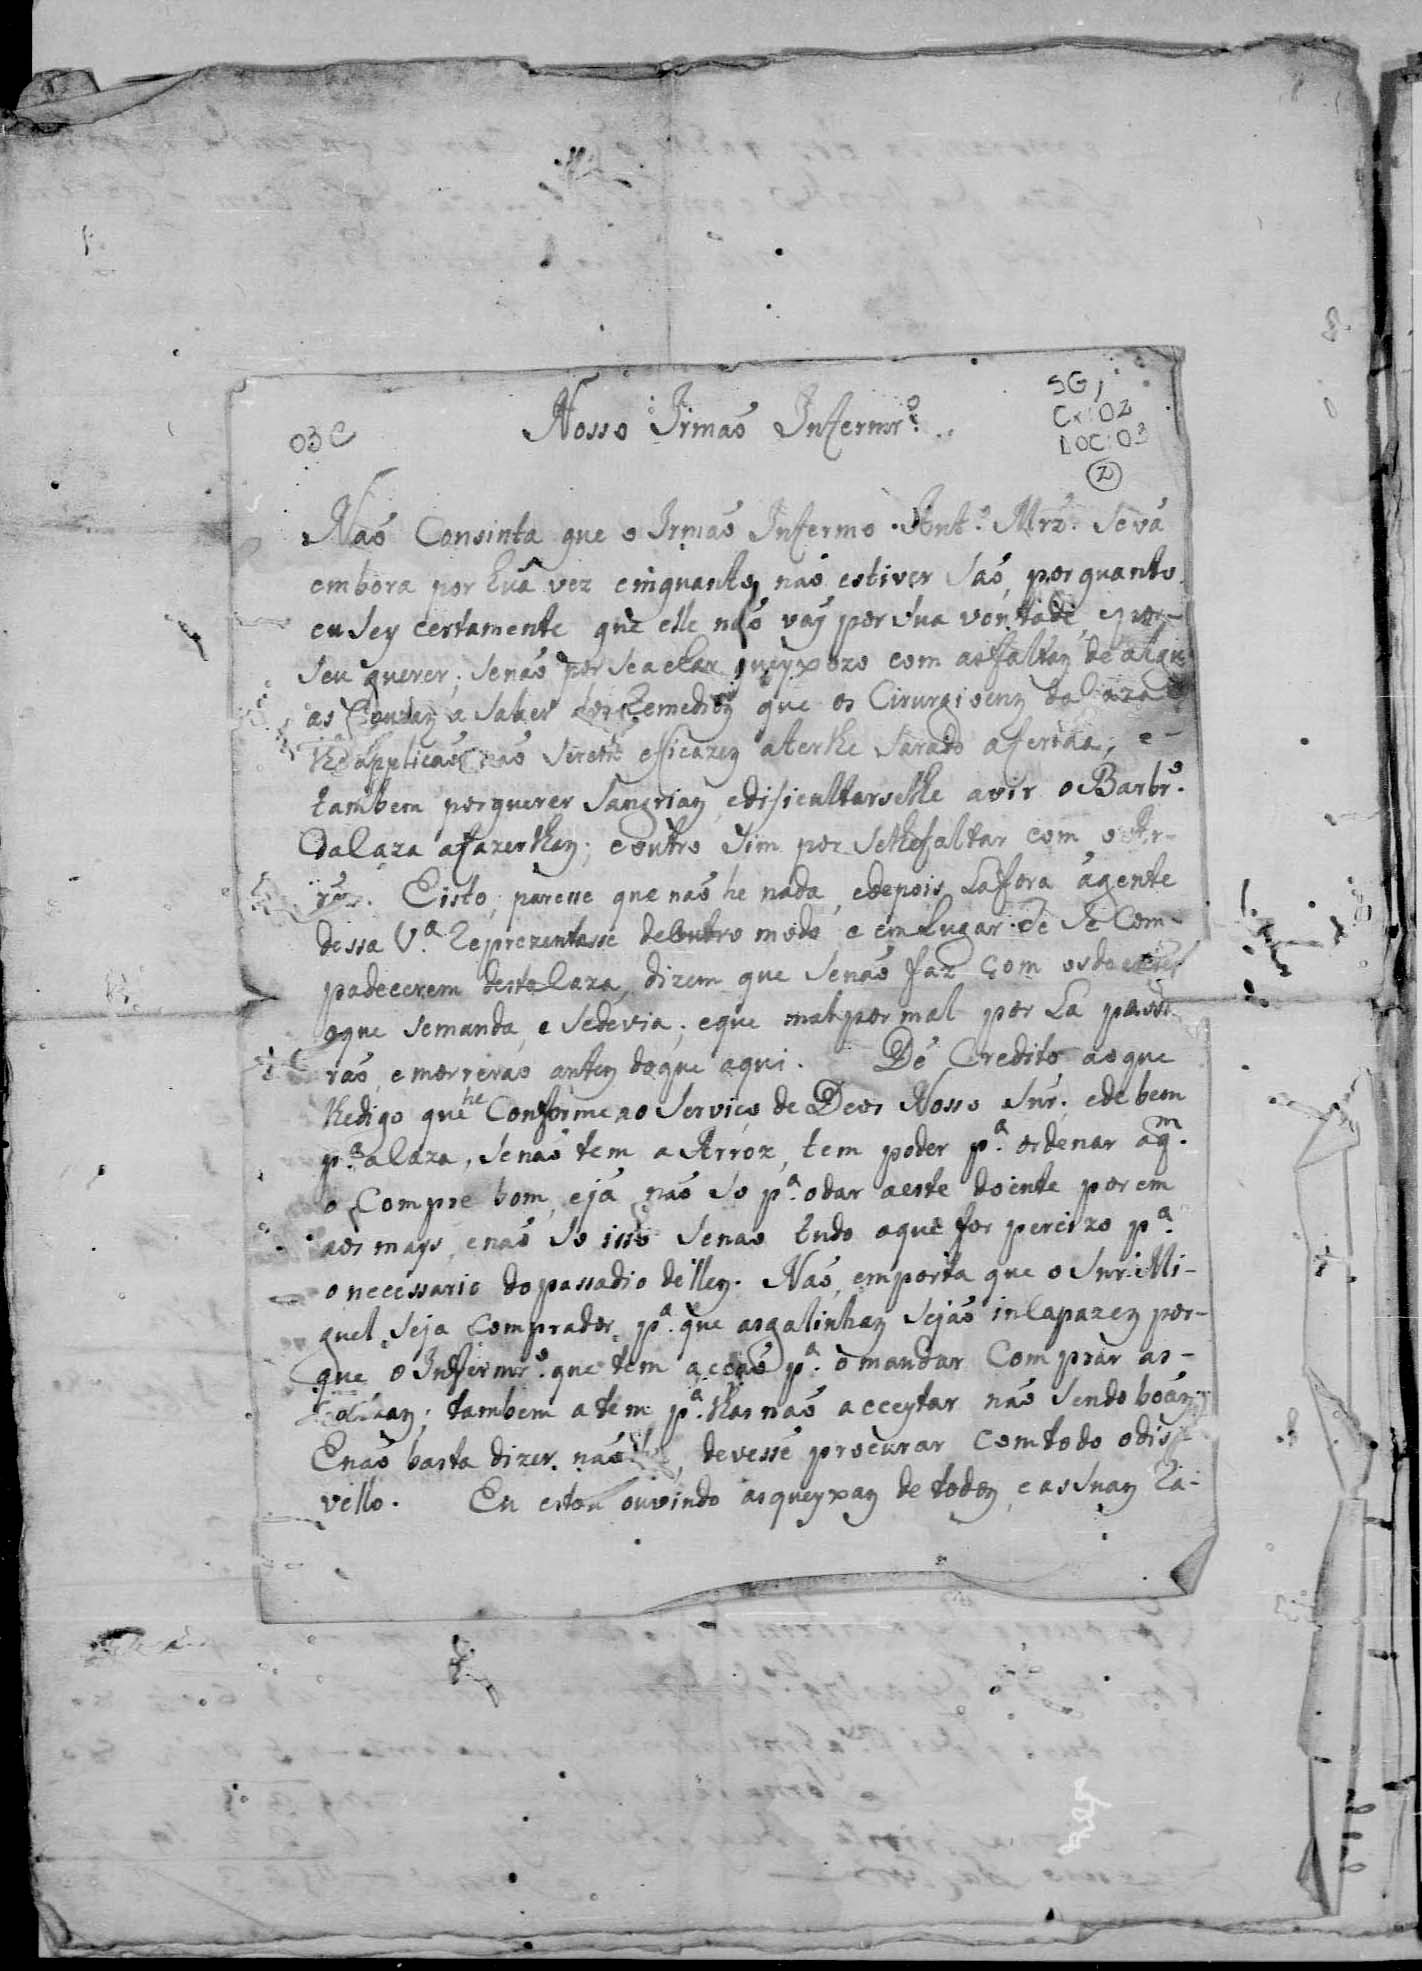 SG,
Cx: 02
DOC: 03
2
03 C
Nosso Irmaõ Infermr.º
Naõ Consinta que o Irmaõ Infermo Ant.º Mrz̃. Se vá
embora por huã vez emquanto naõ estiver Saõ, por quanto
eu Sey certamente que elle naõ vay por Sua vontade, e por
Seu querer; Senaõ por Se achar queyxozo com as faltas de algũ
as Couzas a Saber os Remedios que os Cirurgioens da Caza
lhe applicaõ naõ Serem efficazes a terlhe Sarado a ferida, e
tambem por querer Sangrias, e dificultarselhe a vir o Barbr.º
da Caza a fazerlhas; e outro Sim por Selhe faltar com o Ar-
ros. E isto, paresse que naõ he nada, e depois Lá fora á gente
dessa V.ª Reprezentasse de Outro modo, e em Lugar de Se Com-
padecerem desta Caza, dizem que Senaõ faz Com os doentes
o que Se manda, e Se devia; e que mal por mal por Lá passa
raõ, e morreraõ antes do que aqui. Dé Credito, ao que
lhe digo que he Conforme ao Serviço de Deos Nosso Snr., e de bem
p.ª a Caza, Se naõ tem a Arroz, tem poder p.ª ordenar a q.m
o Compre bom, e já naõ Só p.ª o dar a este doente porem
aos mays, e naõ Só isso Senaõ tudo o que for percizo p.ª
o necessario do passadio delles. Naõ emporta que o Snr. Mi-
guel Seja Comprador, p.ª que as galinhas Sejaõ incapazes por-
que o Infermr.º que tem acçaõ p.ª o mandar Comprar as-
tambem a tem p.ª lhas naõ acceytar naõ Sendo boas,
E naõ basta dizer naõ, devesse procurar Com todo o dis-
vello. Eu estou ouvindo as queyxas de todos, e as Suas Ra-